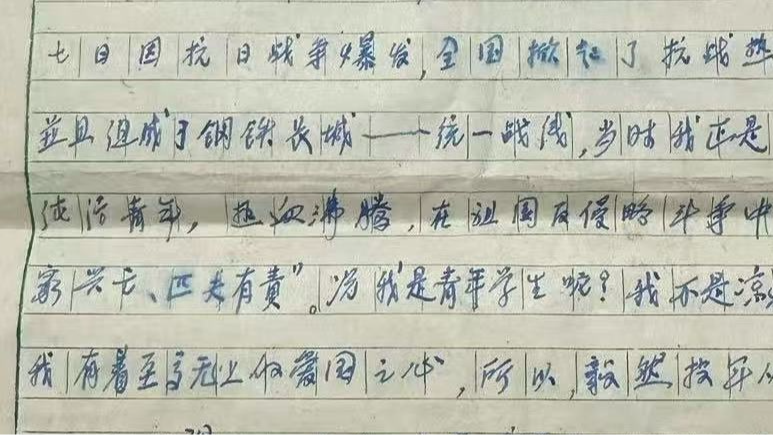 七日因抗日战争爆发,全国掀起了抗战热
並且组成了钢铁长城——统一战线,当时我正是
纯洁青年,热血沸腾,在祖国反侵略斗争中
家兴亡、匹夫有責”。况我是青年学生呢?我不是凉
我有着至高无上的爱国之心,所以,毅然投军